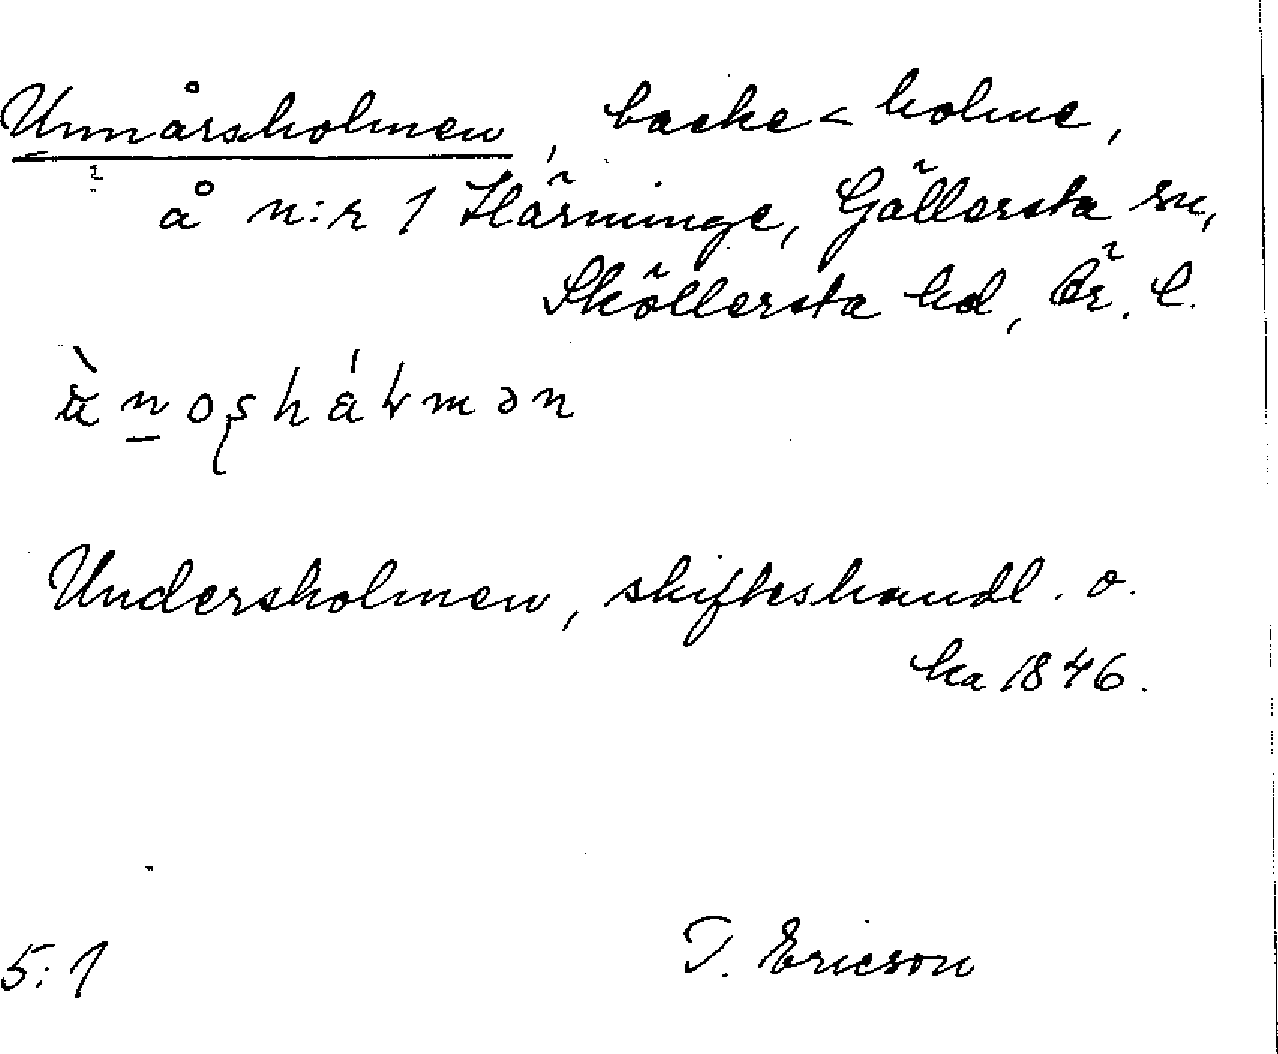 Unnårsholmen, backe < holme,
å n:r 1 Härninge, Gällersta sn,
Sköllersta hd, Ör. l.
Undersholmen, skifteshandl. o.
ka 1846.
5:1 T. Ericson